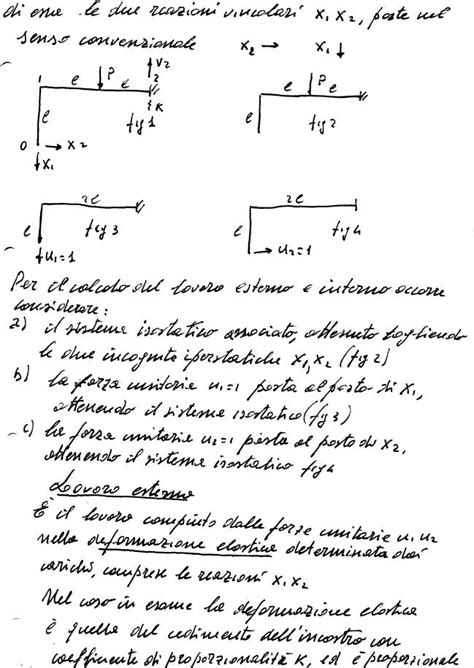 di esse le due reazioni vincolari X1 X2, poste nel
senso convenzionale X2 → X1 ↓
1 l P l V2 2
l K
fig 1
0 → X2
↓ X1
l P l
l fig 2
2l
l fig 3
↓ u1=1
2l
l fig 4
→ u2=1
Per il calcolo del lavoro esterno e interno occorre
considerare:
a) il sistema isostatico associato, ottenuto togliendo
le due incognite iperstatiche X1, X2 (fig 2)
b) la forza unitaria u1=1 posta al posto di X1,
ottenendo il sistema isostatico (fig 3)
c) la forza unitaria u2=1 posta al posto di X2,
ottenendo il sistema isostatico fig 4
Lavoro esterno
È il lavoro compiuto dalle forze unitarie u1 u2
nella deformazione elastica determinata dai
carichi, comprese le reazioni X1 X2
Nel caso in esame la deformazione elastica
è quella del cedimento dell'incastro con
coefficiente di proporzionalità K, ed è proporzionale